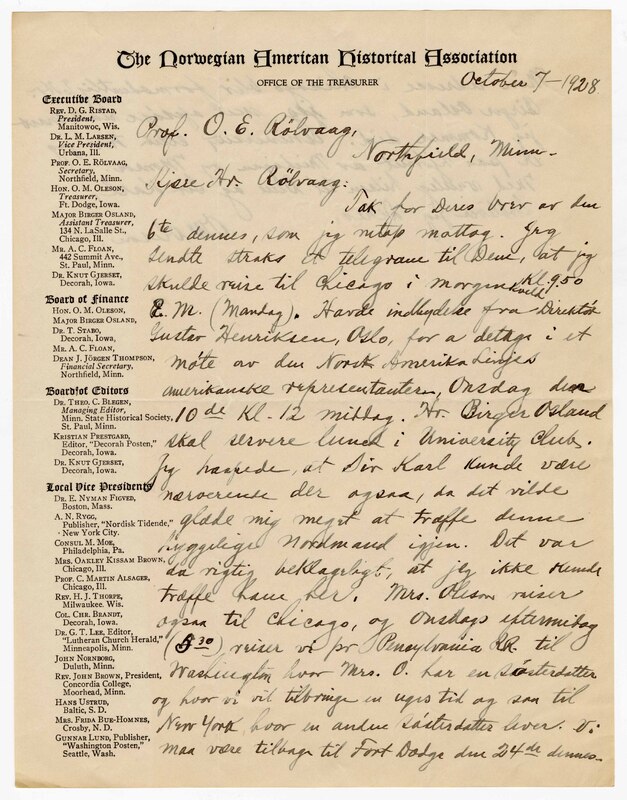 The Norwegian American Historical Association
OFFICE OF THE TREASURER
October 7-1928
Executive Board
REV. D. G. RISTAD,
President,
Manitowoc, Wis.
DR. L. M. LARSEN,
Vice President,
Urbana, Ill.
PROF. O. E. RÖLVAAG,
Secretary,
Northfield, Minn.
HON. O. M. OLESON,
Treasurer,
Ft. Dodge, Iowa.
MAJOR BIRGER OSLAND,
Assistant Treasurer,
134 N. LaSalle St.,
Chicago, Ill.
MR. A. C. FLOAN,
442 Summit Ave.,
St. Paul, Minn.
DR. KNUT GJERSET,
Decorah, Iowa.
Board of Finance
HON. O. M. OLESON,
MAJOR BIRGER OSLAND,
DR. T. STABO,
Decorah, Iowa.
MR. A. C. FLOAN,
DEAN J. JÖRGEN THOMPSON,
Financial Secretary,
Northfield, Minn.
Board of Editors
DR. THEO. C. BLEGEN,
Managing Editor,
Minn. State Historical Society,
St. Paul, Minn.
KRISTIAN PRESTGARD,
Editor, "Decorah Posten,"
Decorah, Iowa.
DR. KNUT GJERSET,
Decorah, Iowa.
Local Vice Presidents
DR. E. NYMAN FIGVED,
Boston, Mass.
A. N. RYGG,
Publisher, "Nordisk Tidende,"
New York City.
CONSUL M. MOE,
Philadelphia, Pa.
MRS. OAKLEY KISSAM BROWN,
Chicago, Ill.
PROF. C. MARTIN ALSAGER,
Chicago, Ill.
REV. H. J. THORPE,
Milwaukee. Wis.
COL. CHR. BRANDT,
Decorah, Iowa.
DR. G. T. LEE, Editor,
"Lutheran Church Herald,"
Minneapolis, Minn.
JOHN NORNBORG,
Duluth, Minn.
REV. JOHN BROWN, President,
Concordia College,
Moorhead, Minn.
HANS USTRUD,
Baltic, S. D.
MRS. FRIDA BUE-HOMNES,
Crosby, N. D.
GUNNAR LUND, Publisher,
"Washington Posten,"
Seattle, Wash.
Prof. O. E. Rölvaag,
Northfield, Minn.
Kjære Hr. Rölvaag:
Tak for Deres brev av den
6te dennes, som jeg mottog. Jeg
sendte straks et telegram til Dem, at jeg
skulde reise til Chicago i morgen kveld Kl. 9.50
E. M. (Mandag). Havde indbydelse fra Direktör
Gustav Henriksen, Oslo, for a detage i et
möte av den Norsk Amerika Linjes
amerikanske representanter, Onsdag den
10de Kl. 12 middag. Hr. Birger Osland
skal servere lunch i University Club.
Jeg haapede, at Dir Karl kunde være
nærværende der ogsaa, da det vilde
glæde mig meget at træffe denne
hyggelige Nordmand igjen. Det var
da rigtig beklageligt, at jeg ikke kunde
træffe ham her. Mrs. Oleson reiser
ogsaa til Chicago, og Onsdags eftermidag
(5 30) reiser vi pr Pennsylvania RR. til
Washington hvor Mrs. O. har en söstersdatter
og hvor vi vil tilbringe en uges tid og saa til
New York, hvor en anden söstersdatter lever. Vi
maa være tilbage til Fort Dodge den 24de dennes.